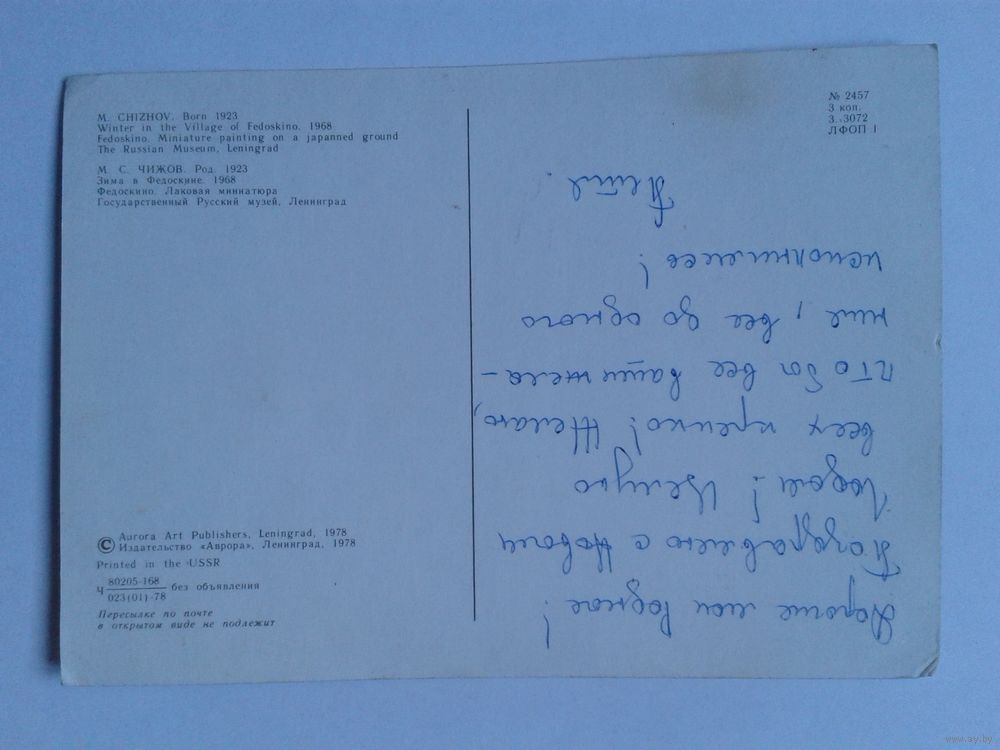 M. CHIZHOV. Born 1923
Winter in the Village of Fedoskino. 1968
Fedoskino. Miniature painting on a japanned ground
The Russian Museum, Leningrad
М. С. ЧИЖОВ. Род. 1923
Зима в Федоскине. 1968
Федоскино. Лаковая миниатюра
Государственный Русский музей, Ленинград
© Aurora Art Publishers, Leningrad, 1978
Издательство «Аврора», Ленинград, 1978
Printed in the USSR
Ч 80205-168 без объявления
023(01)-78
Пересылке по почте
в открытом виде не подлежит
№ 2457
3 коп.
З. 3072
ЛФОП 1
мои родные!
Поздравляю с Новым
Годом! Целую
всех крепко! Желаю,
что бы все ваши жела-
ния, все до одного
исполнились!
www.ay.by